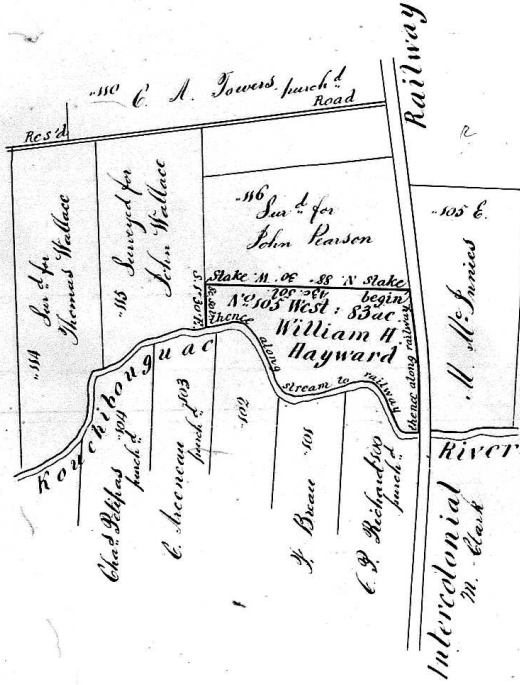 "110 C. A. Towers purchᵈ
Res'd Road
Railway
"114 Surᵈ for
Thomas Wallace
"115 Surveyed for
John Wallace
"116
Surᵈ for
John Pearson
"105 E.
M. McInnies
Stake W. 30' 88° N. Stake
43c. 50l.
begin
Nº 105 West: 83ac
William H.
Hayward
S. 1° 30' E.
thence
along
stream to railway
thence along railway
Kouchibouguac
River
Chaˢ
"104
purchᵈ
C. Arceneau "103
purchᵈ
"102
F. Breau "101
C. P. Richard "100
purchᵈ
Intercolonial
M. Clark